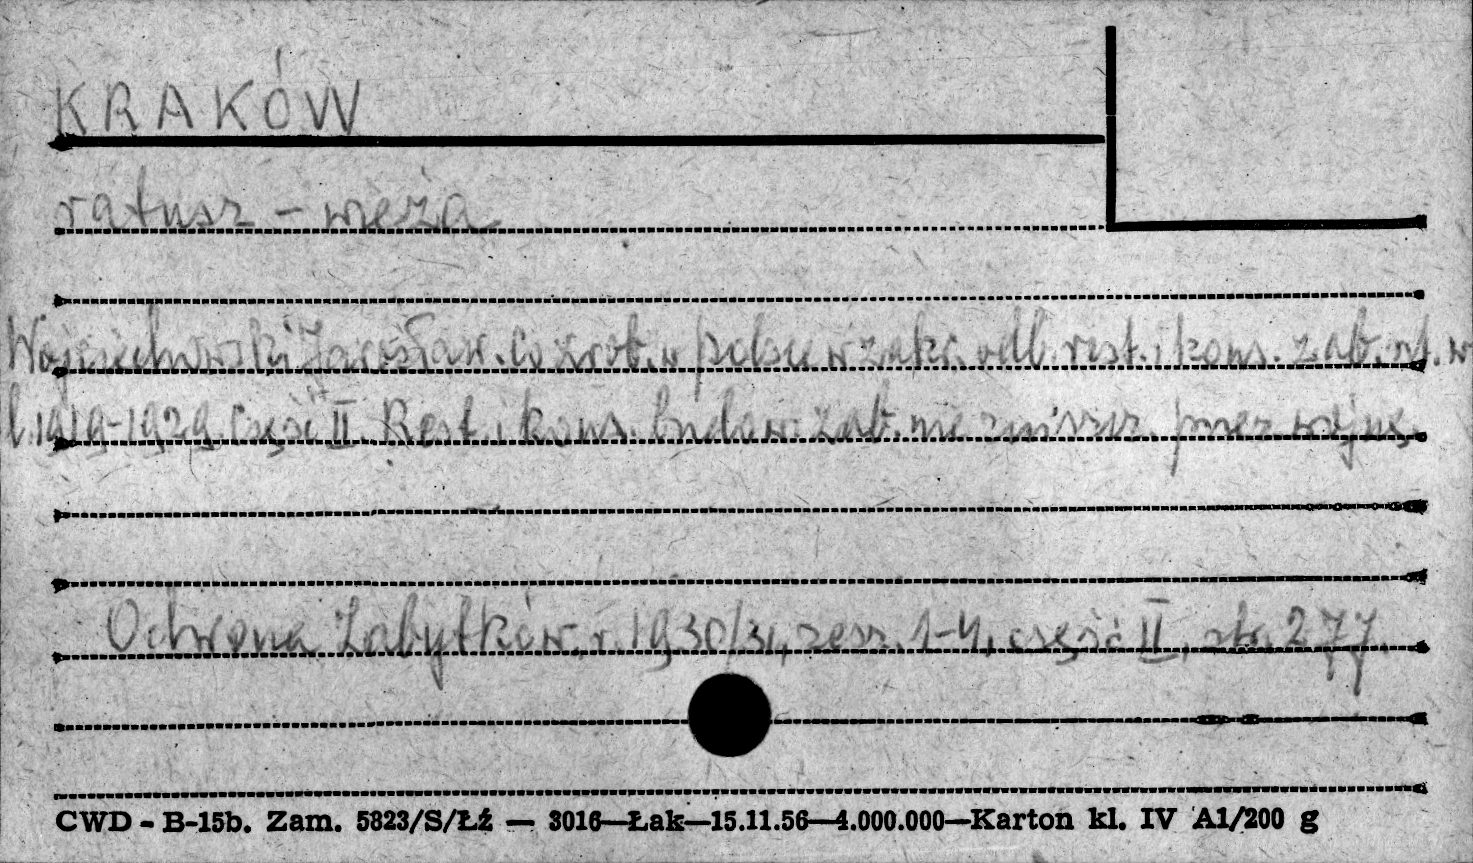 KRAKÓW
ratusz - wieża
Wojciechowski Jarosław. Co zrob. w Polsce w zakr. odb. rest. i kons. zab. w
l. 1919-1929. Część II Rest. i kons. budow. zab. nie zniszcz. przez wojnę.
Ochrona Zabytków, r. 1930/31, zesz. 1-4, część II, str. 277.
CWD - B-15b. Zam. 5823/S/Łź — 3016—Łak—15.11.56—4.000.000—Karton kl. IV A1/200 g